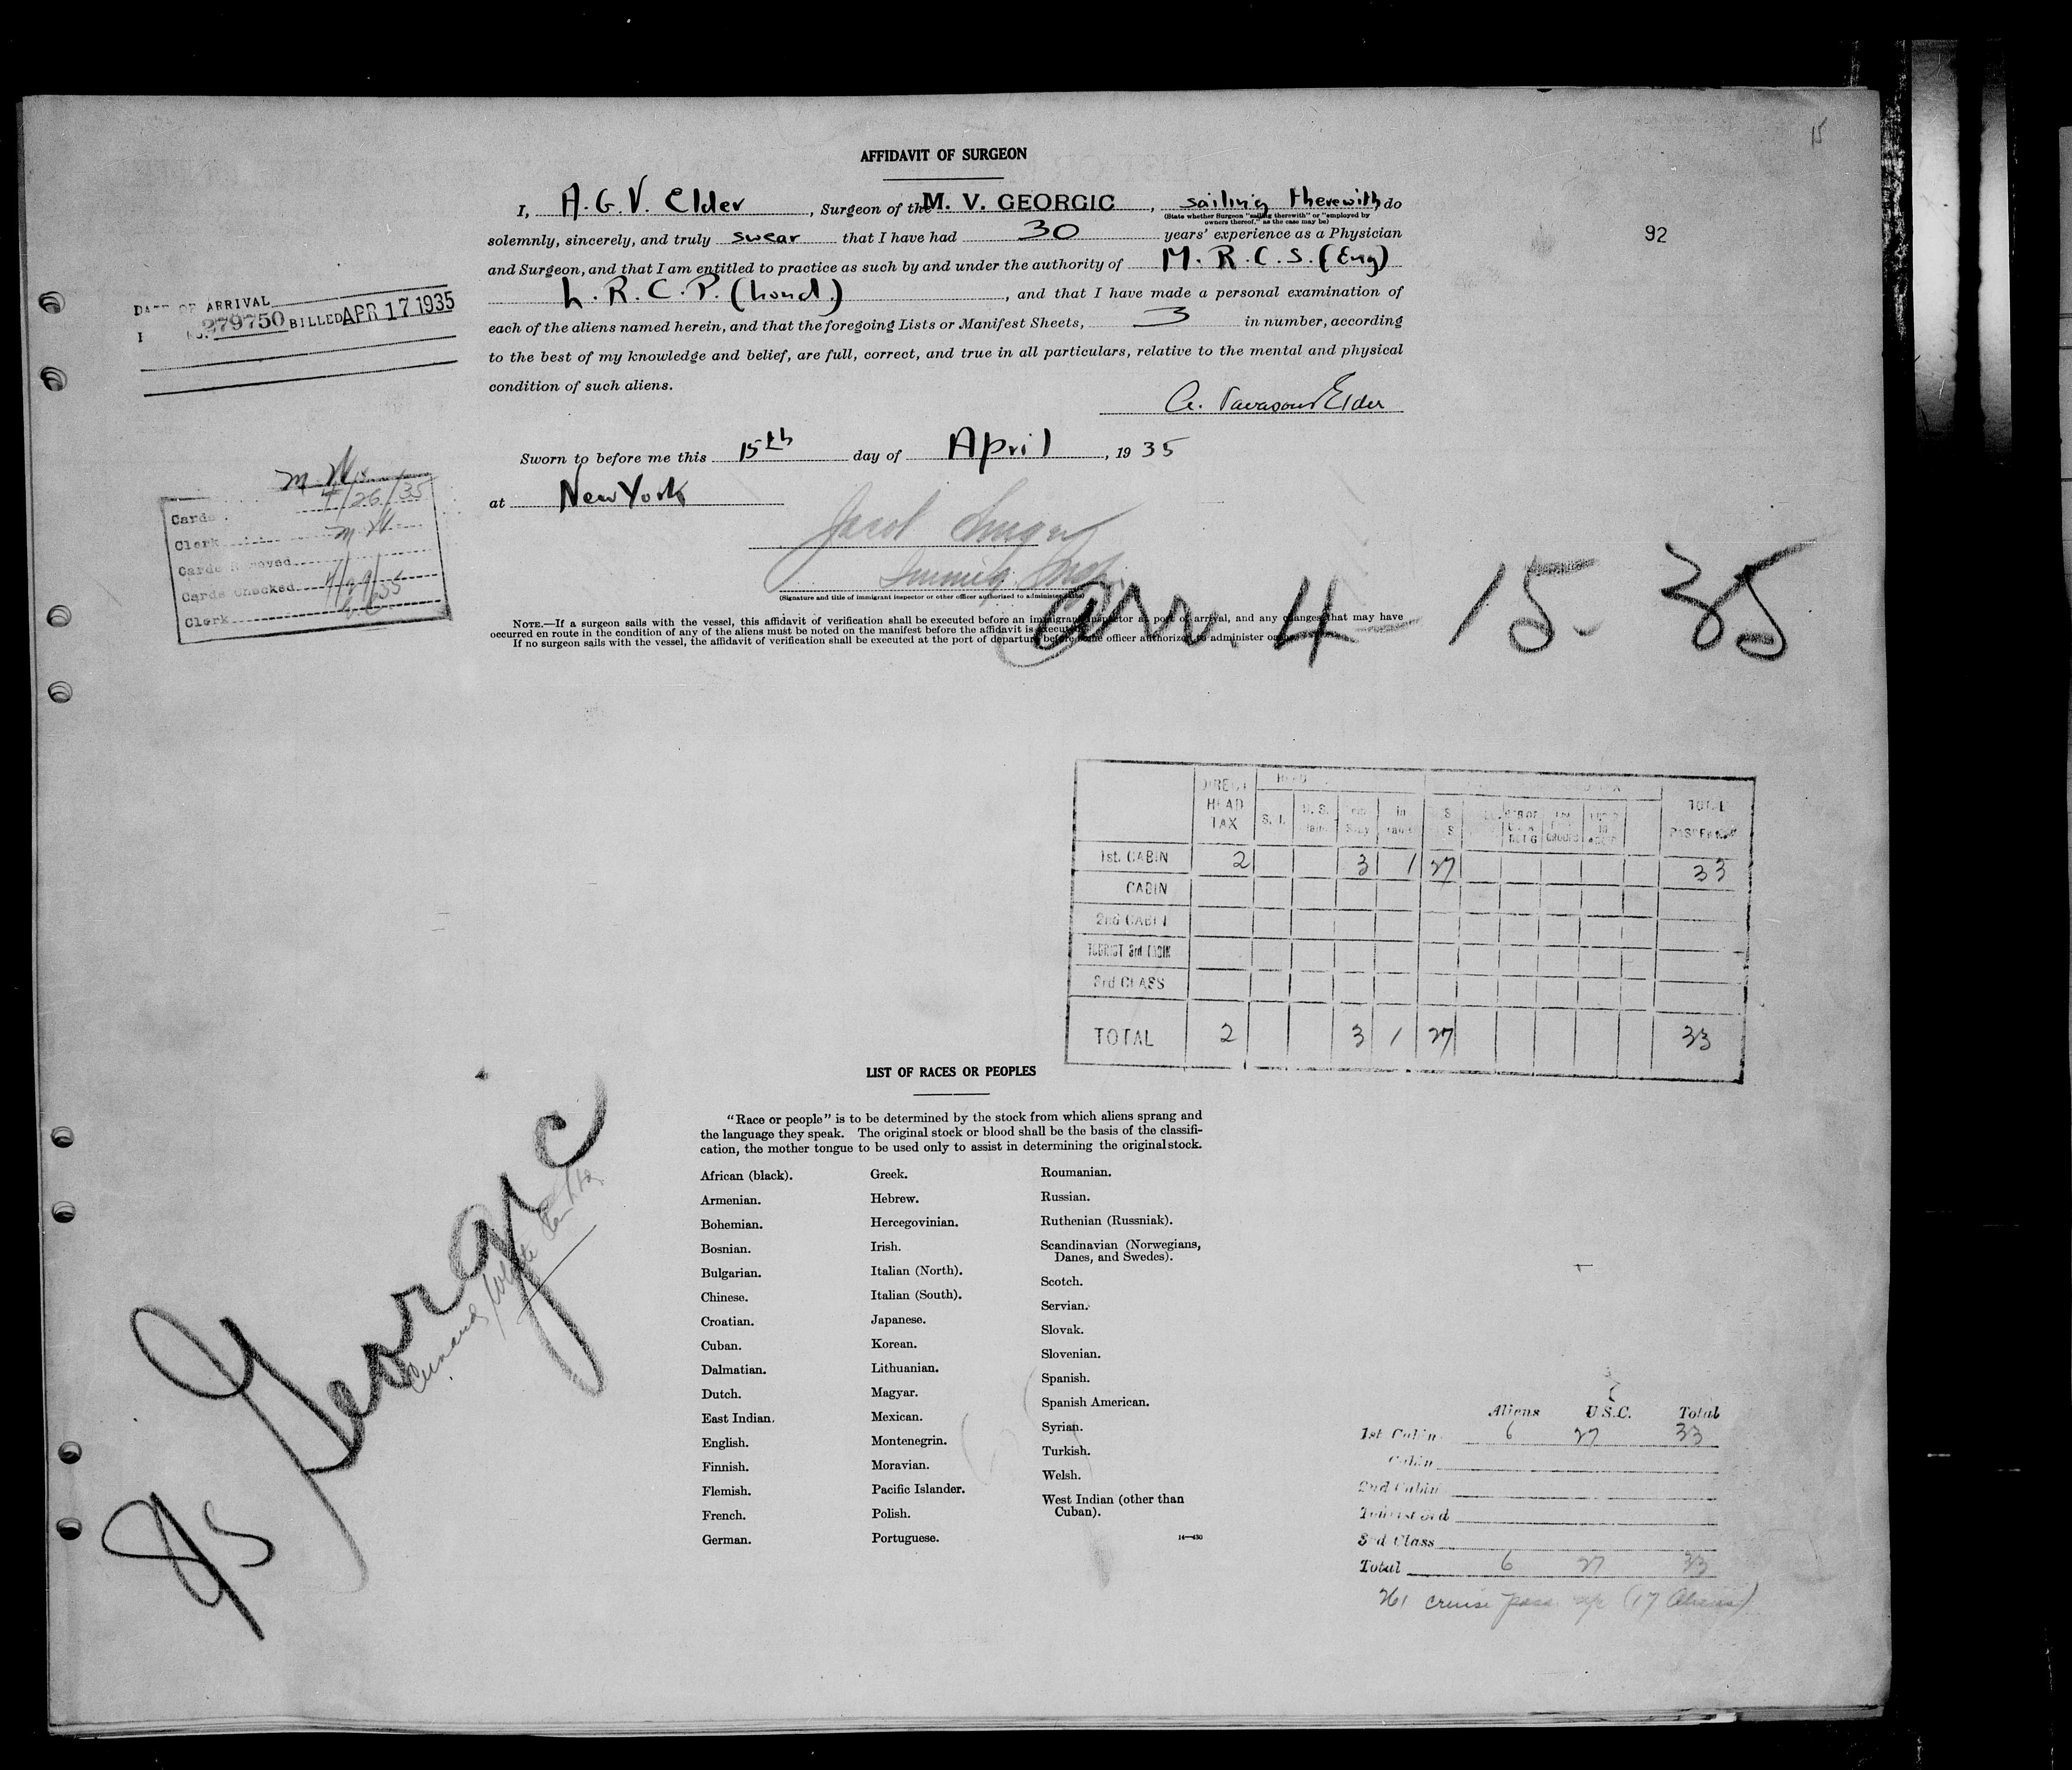 15
AFFIDAVIT OF SURGEON
I, A. G. V. Elder, Surgeon of the M. V. GEORGIC, sailing therewith do
(State whether Surgeon "sailing therewith" or "employed by
owners thereof," as the case may be)
solemnly, sincerely, and truly swear that I have had 30 years' experience as a Physician
92
and Surgeon, and that I am entitled to practice as such by and under the authority of M. R. C. S. (Eng)
L. R. C. P. (Lond.), and that I have made a personal examination of
each of the aliens named herein, and that the foregoing Lists or Manifest Sheets, 3 in number, according
to the best of my knowledge and belief, are full, correct, and true in all particulars, relative to the mental and physical
condition of such aliens.
DATE OF ARRIVAL
279750 BILLED APR 17 1935
Elder
Sworn to before me this 15th day of April, 1935
at New York
Cards 4/26/35
Clerk
Cards Checked 4/29/35
Clerk
(Signature and title of immigrant inspector or other officer authorized to administer oaths)
arr. 4 - 15 - 35
NOTE.—If a surgeon sails with the vessel, this affidavit of verification shall be executed before an immigrant inspector at port of arrival, and any changes that may have
occurred en route in the condition of any of the aliens must be noted on the manifest before the affidavit is executed.
If no surgeon sails with the vessel, the affidavit of verification shall be executed at the port of departure before the officer authorized to administer oaths.
DIRECT HEAD TAX
S. I.
U. S.
TOTAL PASSENGERS
1st. CABIN 2 3 1 27 33
CABIN
2nd CABIN
TOURIST 3rd CABIN
3rd CLASS
TOTAL 2 3 1 27 33
LIST OF RACES OR PEOPLES
"Race or people" is to be determined by the stock from which aliens sprang and
the language they speak. The original stock or blood shall be the basis of the classifi-
cation, the mother tongue to be used only to assist in determining the original stock.
African (black).
Armenian.
Bohemian.
Bosnian.
Bulgarian.
Chinese.
Croatian.
Cuban.
Dalmatian.
Dutch.
East Indian.
English.
Finnish.
Flemish.
French.
German.
Greek.
Hebrew.
Hercegovinian.
Irish.
Italian (North).
Italian (South).
Japanese.
Korean.
Lithuanian.
Magyar.
Mexican.
Montenegrin.
Moravian.
Pacific Islander.
Polish.
Portuguese.
Roumanian.
Russian.
Ruthenian (Russniak).
Scandinavian (Norwegians,
Danes, and Swedes).
Scotch.
Servian.
Slovak.
Slovenian.
Spanish.
Spanish American.
Syrian.
Turkish.
Welsh.
West Indian (other than
Cuban).
14—430
Georgic
Cunard White Star Ltd
Aliens U.S.C. Total
1st Cabin 6 27 33
Cabin
2nd Cabin
Tourist 3rd
3rd Class
Total 6 27 33
261 cruise pass. (17 Aliens)